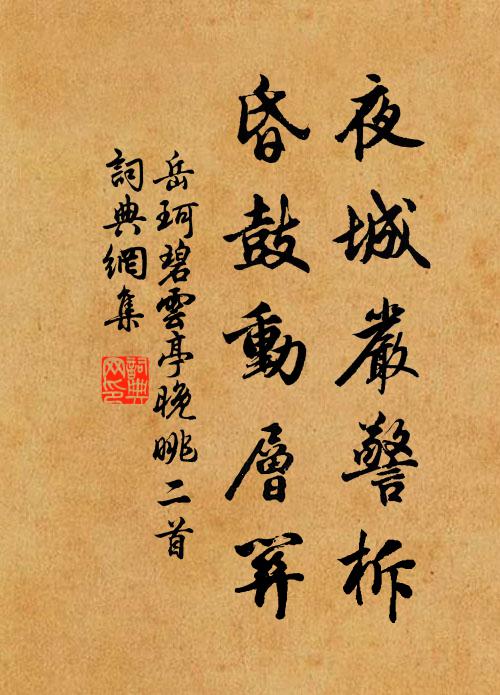 夜城嚴警柝
昏鼓動層
岳珂碧雲亭晚眺二首
詞典網集
詞典网印